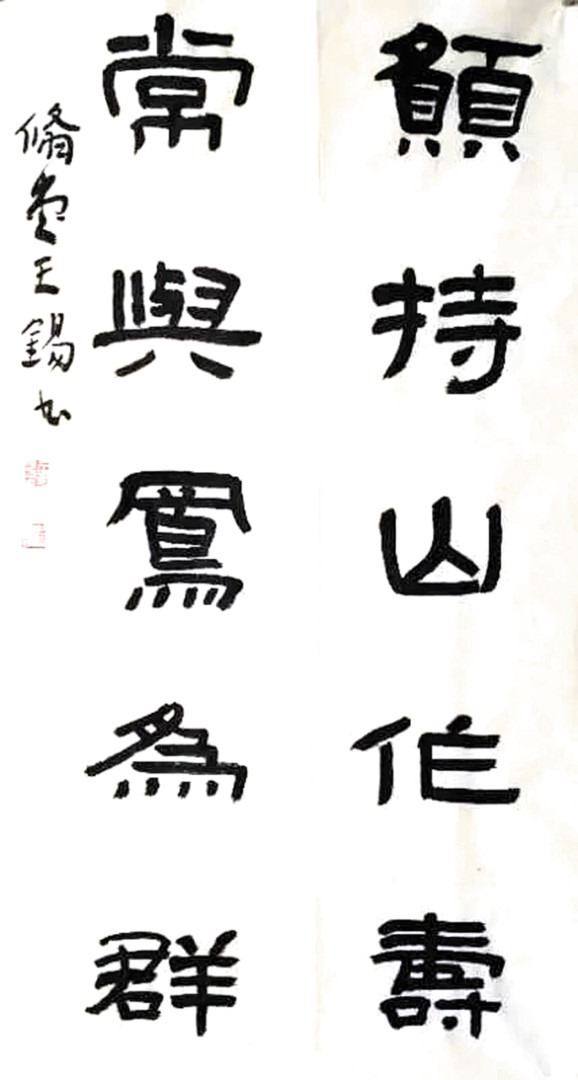 願持山作壽
常與鶴為群
脩堂王錫书